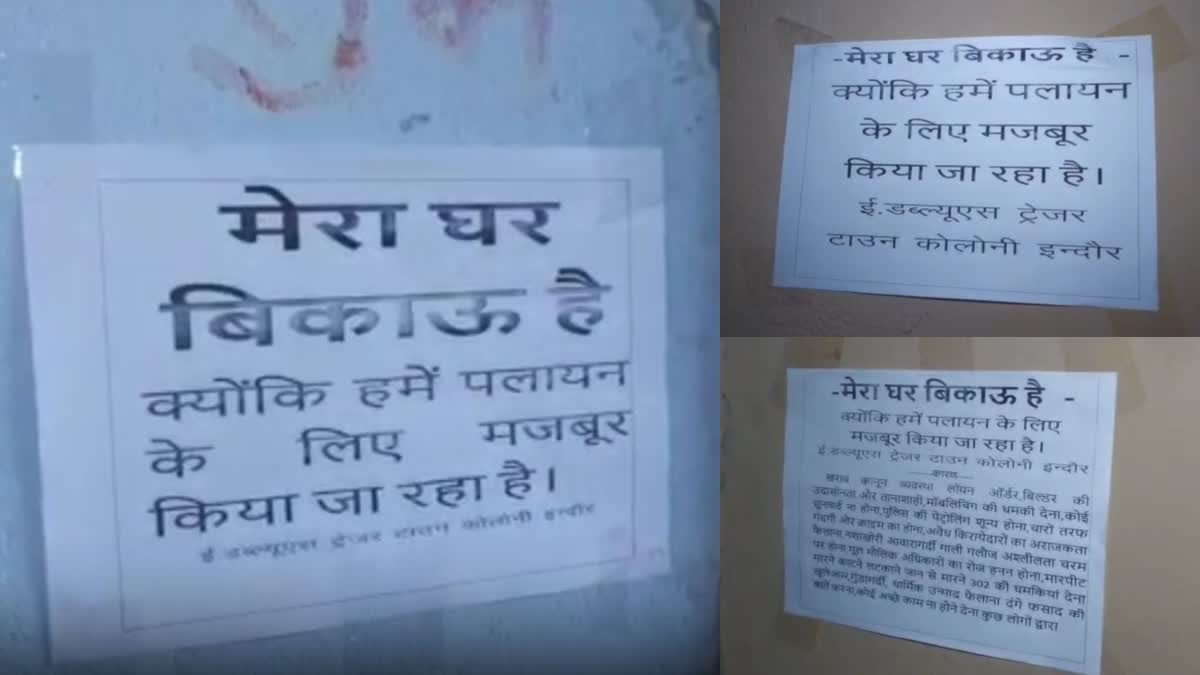 मेरा घर
बिकाऊ है
क्योंकि हमें पलायन
के लिए मजबूर
किया जा रहा है।
ई डब्ल्यूएस ट्रेजर टाउन कोलोनी इन्दौर
-मेरा घर बिकाऊ है -
क्योंकि हमें पलायन
के लिए मजबूर
किया जा रहा है।
ई.डब्ल्यूएस ट्रेजर
टाउन कोलोनी इन्दौर
-मेरा घर बिकाऊ है -
क्योंकि हमें पलायन के लिए
मजबूर किया जा रहा है।
ई.डब्ल्यूएस ट्रेजर टाउन कोलोनी इन्दौर
----कारण----
खराब कानून व्यवस्था लॉयन ऑर्डर,बिल्डर की
उदासीनता और तानाशाही,मॉबलिंचिंग की धमकी देना,कोई
सुनवाई ना होना,पुलिस की पेट्रोलिंग शून्य होना,चारो तरफ
गंदगी और क्राइम का होना,अवैध किरायेदारों का अराजकता
फैलाना,नशाखोरी आवारागर्दी गाली गलौज अश्लीलता चरम
पर होना,मूल मौलिक अधिकारों का रोज हनन होना,मारपीट
मारने काटने लटकाने जान से मारने 302 की धमकियां देना
खुलेआम,गुंडागर्दी, धार्मिक उन्माद फैलाना दंगे फसाद की
बातें करना,कोई अच्छे काम ना होने देना कुछ लोगों द्वारा